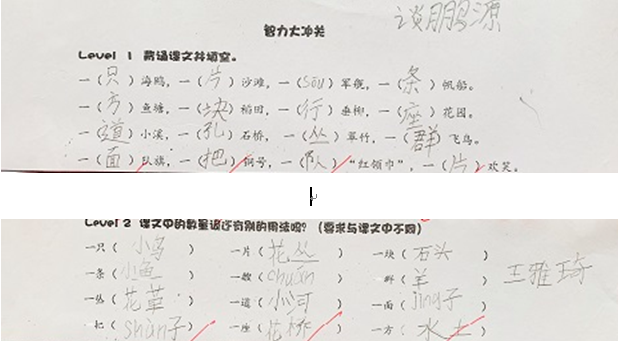 谈鹏源
智力大冲关
Level 1 背诵课文并填空。
一（只）海鸥，一（片）沙滩，一（sōu）军舰，一（条）帆船。
一（方）鱼塘，一（块）稻田，一（行）垂柳，一（座）花园。
一（道）小溪，一（孔）石桥，一（丛）翠竹，一（群）飞鸟。
一（面）队旗，一（把）铜号，一（队）“红领巾”，一（片）欢笑。
Level 2 课文中的数量词还有别的用法吗？（要求与课文中不同）
一只（小鸟） 一片（花丛） 一块（石头）
一条（小鱼） 一艘（chuán） 群（羊） 王雅琦
一丛（花草） 一道（小河） 一面（jìng子）
把（shàn子） 一座（花桥） 一方（水土）